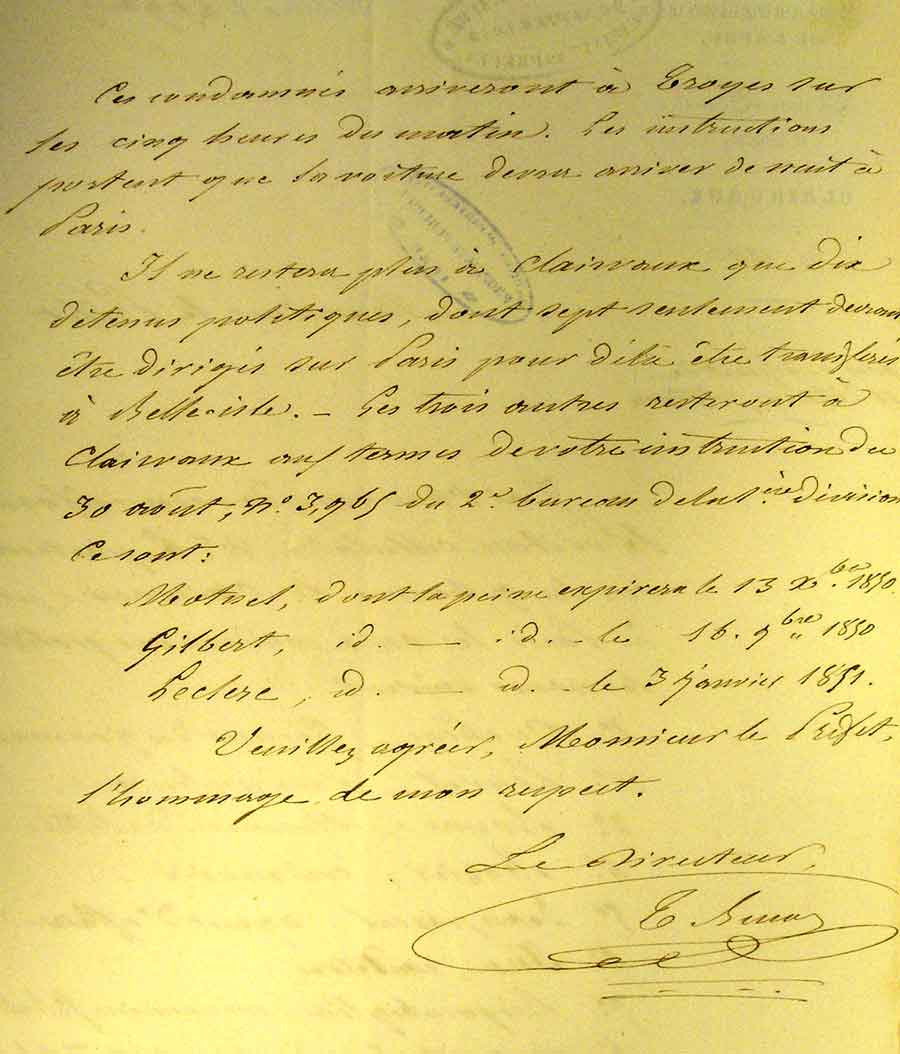 Ces condamnés arriveront à Troyes sur
les cinq heures du matin. Les instructions
portent que la voiture devra arriver de nuit à
Paris.
Il ne restera plus à Clairvaux que dix
détenus politiques, dont sept seulement devront
être dirigés sur Paris pour delà être transférés
à Belle-isle. — Les trois autres resteront à
Clairvaux aux termes de votre instruction du
30 août, No. 3,965 du 2e. bureau de la 1ère division
Ce sont:
dont la peine expirera le 13 Xbre. 1850.
Gilbert, id. — id. — le 16. 9bre 1850
Leclerc, id. — id. — le 3 janvier 1851.
Veuillez agréer, Monsieur le Préfet,
l'hommage de mon respect.
Le Directeur,
CLAIRVAUX.